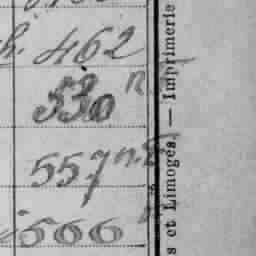 h. 462
530 n.
557 n.
566
s et Limoges. — Imprimerie